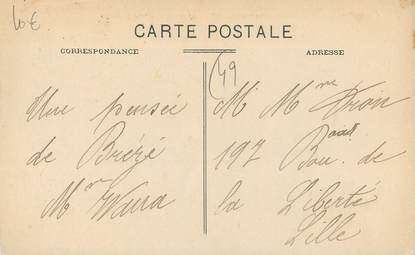 10 €
CARTE POSTALE
CORRESPONDANCE
ADRESSE
49
Une pensée
de Brézé
M me
M. Mme Dron
197 Bou. de
la Liberté
Lille